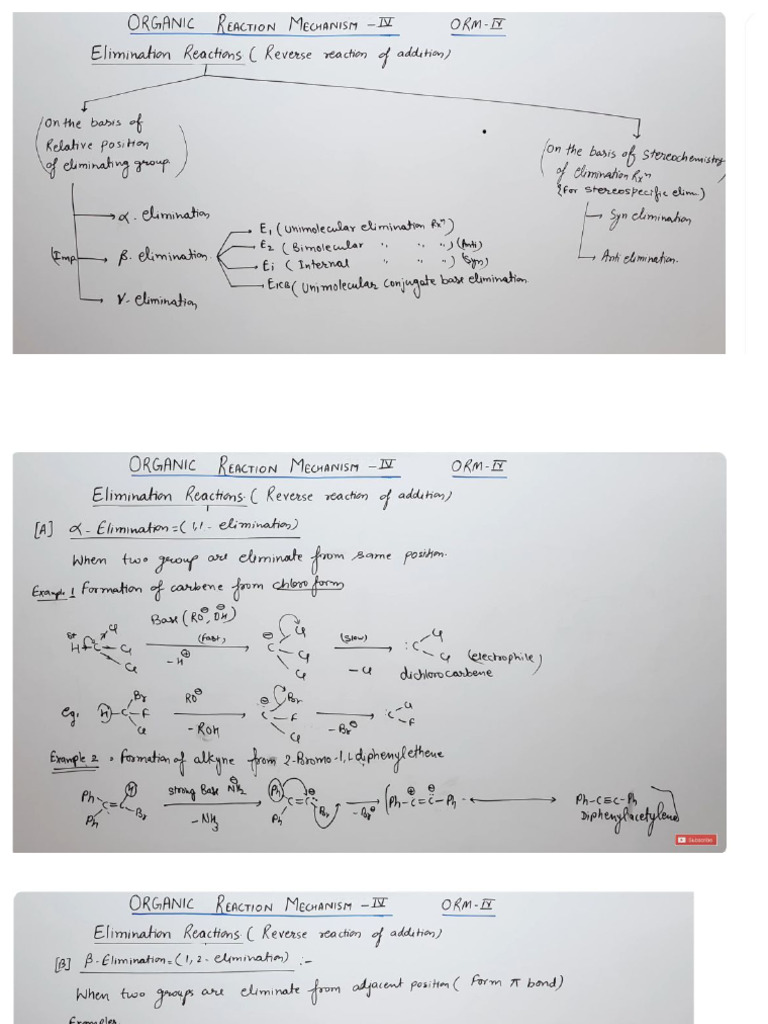 ORGANIC REACTION MECHANISM - IV ORM-IV
Elimination Reactions ( Reverse reaction of addition)
(On the basis of
Relative position
of eliminating group)
(On the basis of Stereochemistry
of elimination Rxn
{for stereospecific elim.)
α. elimination
β. elimination
γ- elimination
(Imp
E1 (Unimolecular elimination Rxn)
E2 (Bimolecular " " ") (Anti)
Ei (Internal " " ") (Syn)
E1CB (Unimolecular conjugate base elimination
Syn elimination
Anti elimination.
ORGANIC REACTION MECHANISM - IV ORM-IV
Elimination Reactions. ( Reverse reaction of addition)
[A] α- Elimination=( 1,1- elimination)
When two group are eliminate from same position.
Example 1 Formation of carbene from chloroform
Base (RO⊖, OH⊖)
H C Cl Cl Cl (fast) -H⊕ ⊖ C Cl Cl Cl (slow) -Cl :C Cl Cl (electrophile)
dichlorocarbene
eg. H-C Br F Cl RO⊖ -ROH ⊖ C Br F Cl -Br⊖ :C Cl F
Example 2 = Formation of alkyne from 2-Bromo-1,1 diphenylethene
Ph Ph C=C H Br strong Base NH2⊖ -NH3 Ph Ph C=C: Br -Br⊖ (Ph-C=C-Ph Ph-C≡C-Ph
Diphenylacetylene
Subscribe
ORGANIC REACTION MECHANISM - IV ORM-IV
Elimination Reactions. ( Reverse reaction of addition)
[B] β-Elimination=( 1, 2- elimination) :-
When two groups are eliminate from adjacent position ( Form π bond)
Examples.